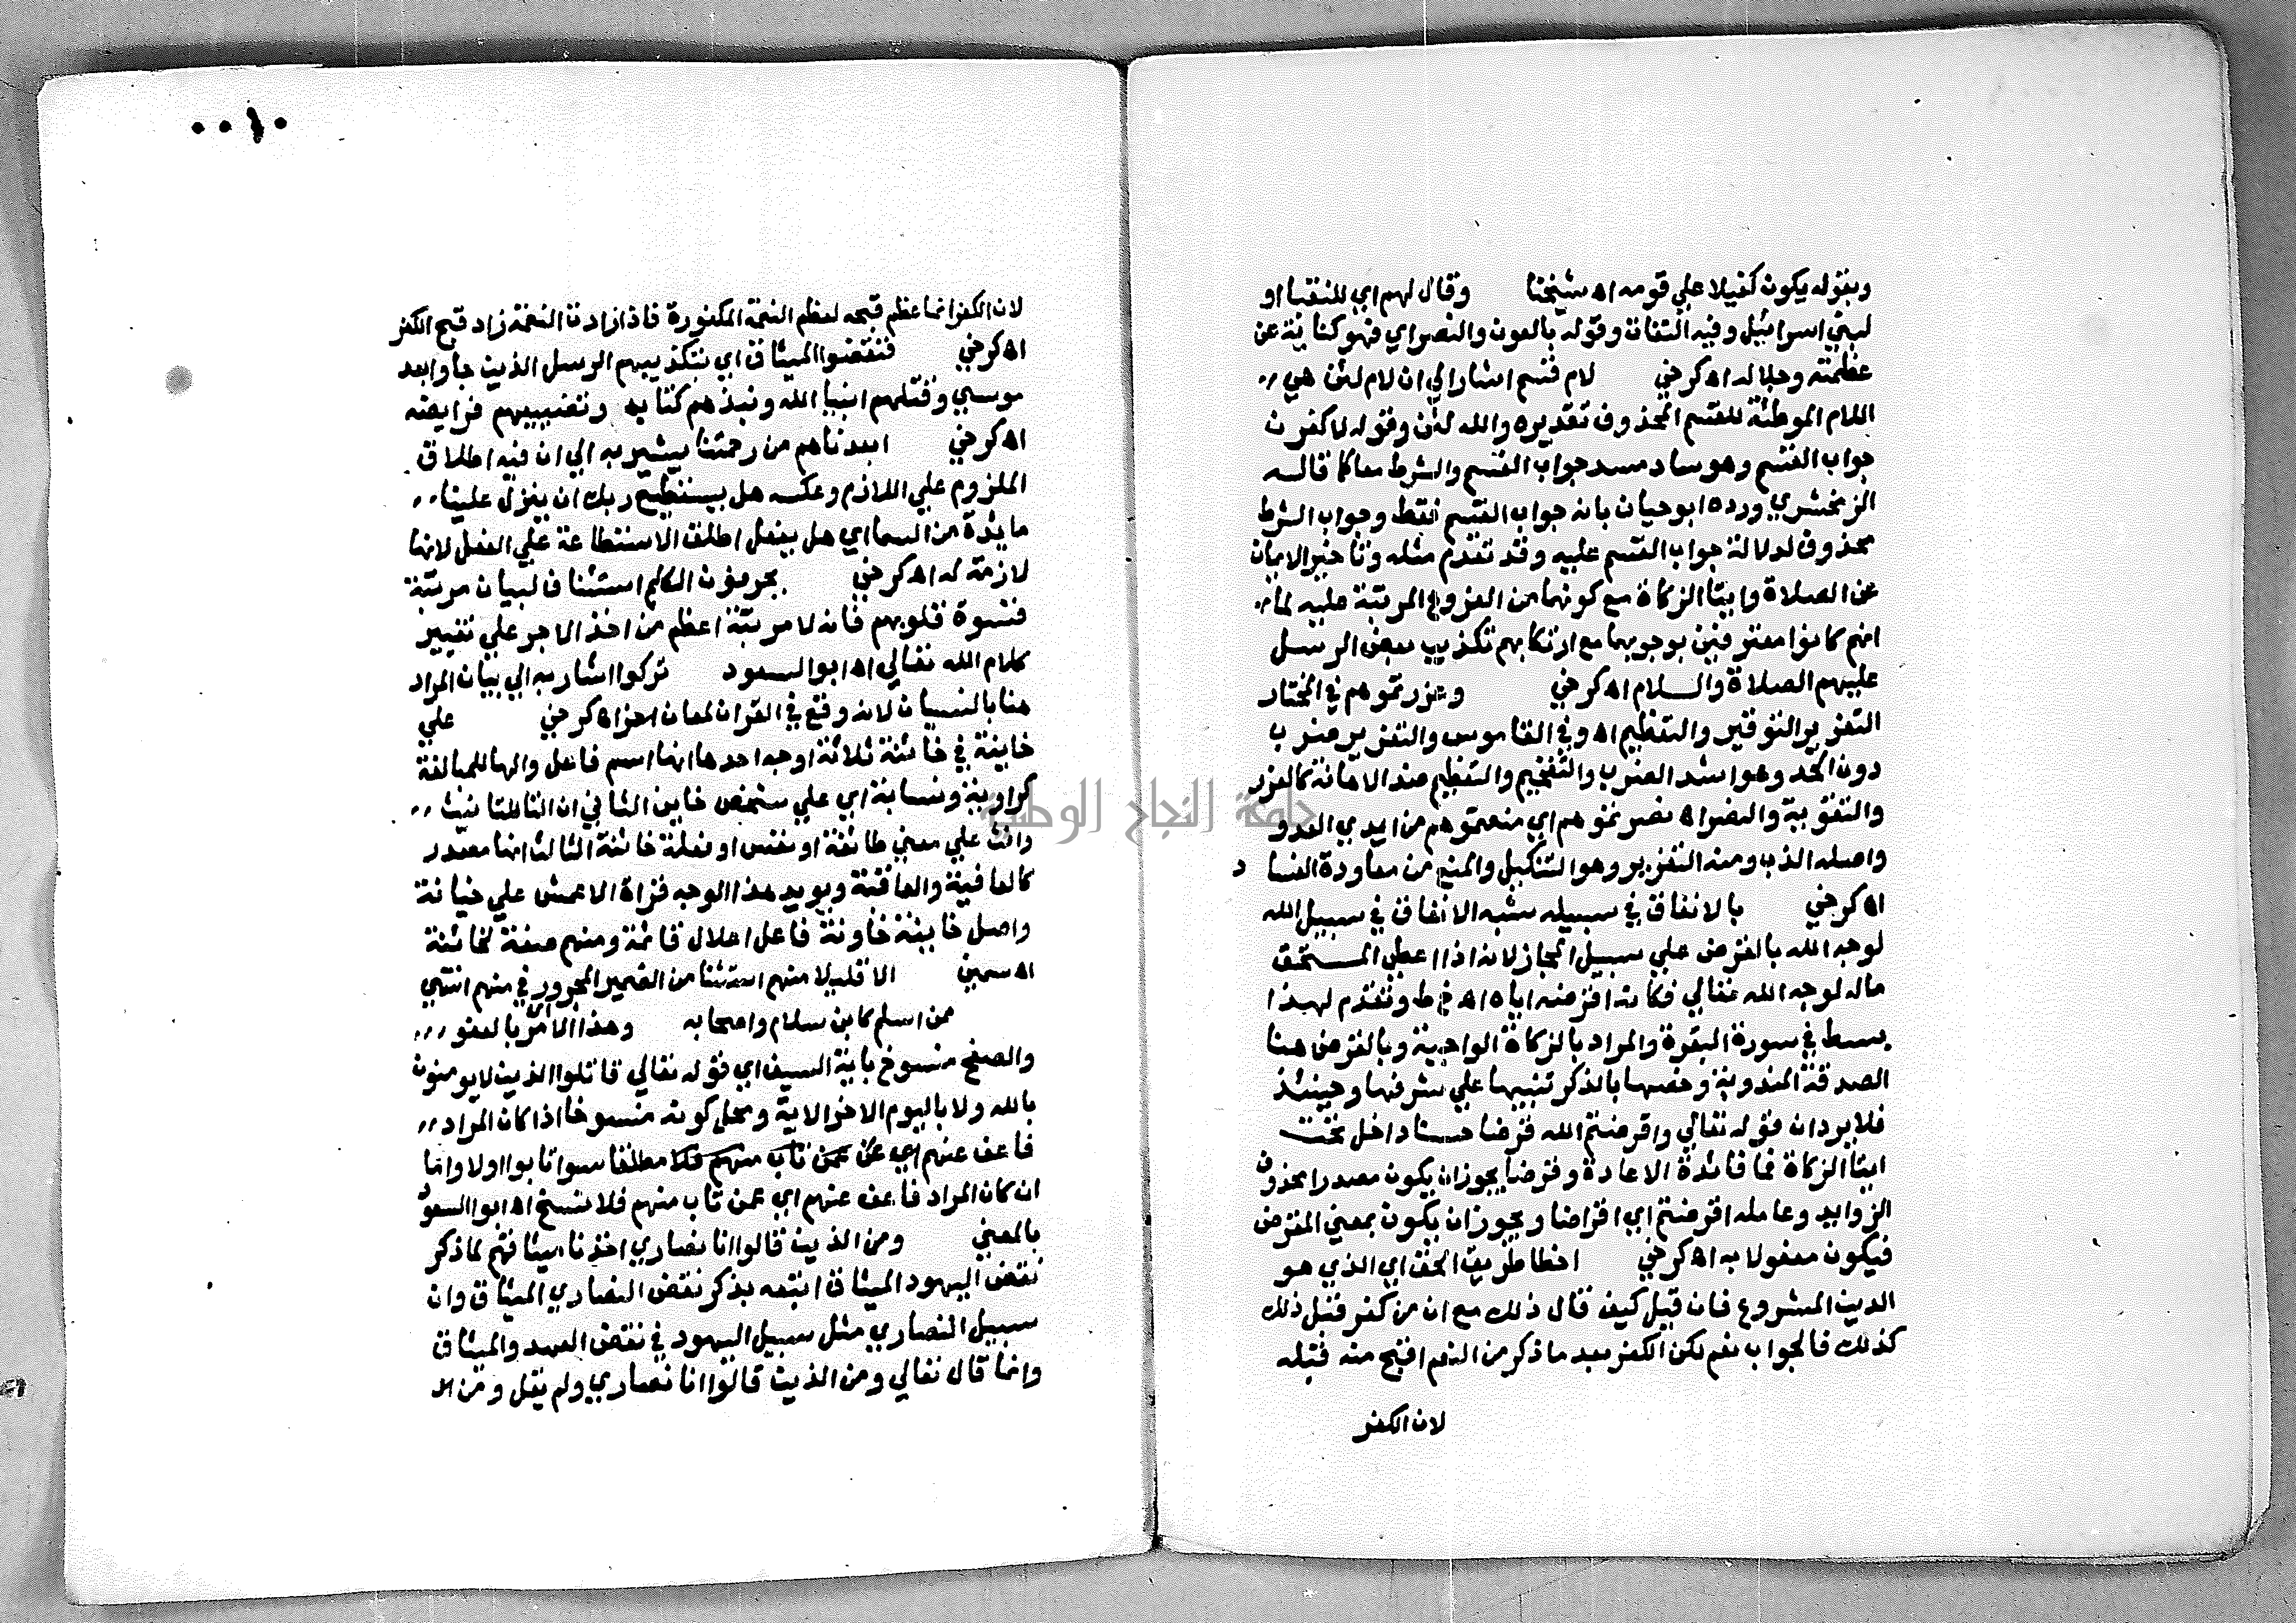 وبقوله يكون كفيلا علي قومه اه شيخنا وقال لهم اي للنقبا او
لبني اسرائيل وفيه التفات وقوله بالعون والنصر اي فهو كناية عن
عظمته وجلاله اه كرخي لام قسم اشار الي ان لام لئن هي
اللام الموطئة للقسم المحذوف تقديره والله لئن وقوله لاكفرن
جواب القسم وهو ساد مسد جواب القسم والشرط معا كما قاله
الزمخشري ورده ابو حيان بانه جواب القسم فقط وجواب الشرط
محذوف لدلالة جواب القسم عليه وقد تقدم مثله وتاخير الايمان
عن الصلاة وايتا الزكاة مع كونهما من الفروع المرتبة عليه لما
انهم كانوا معترفين بوجوبهما مع ارتكابهم تكذيب بعض الرسل
عليهم الصلاة والسلام اه كرخي وعزرتموهم في المختار
التعزير التوقير والتعظيم اه وفي القاموس والتعزير ضرب
دون الحد وهو اشد الضرب والتفخيم والتعظيم ضد الاهانة كالعزر
والتقوية والنصر اه نصرتموهم اي منعتموهم من ايدي العدو
واصله الذب ومنه التعزير وهو التنكيل والمنع من معاودة الفسا د
اه كرخي بالانفاق في سبيله شبه الانفاق في سبيل الله
لوجه الله بالقرض علي سبيل المجاز لانه اذا اعطي المستحق
ماله لوجه الله تعالي فكانه اقرضه اياه اه خط وتقدم لهذا
بسط في سورة البقرة والمراد بالزكاة الواجبة وبالقرض هنا
الصدقة المندوبة وخصها بالذكر تنبيها علي شرفها وحينئذ
فلا يرد ان قوله تعالي واقرضتم الله قرضا حسنا داخل تحت
ايتا الزكاة فما فائدة الاعادة وقرضا يجوز ان يكون مصدرا محذوف
الزوايد وعامله اقرضتم اي اقراضا ويجوز ان يكون بمعني المقرض
فيكون مفعولا به اه كرخي اخطا طريق الحق اي الذي هو
الدين المشروع فان قيل كيف قال ذلك مع ان من كفر قبل ذلك
كذلك فالجواب نعم لكن الكفر بعد ما ذكر من النعم اقبح منه قبله
لان الكفر
٠١٠٠
لان الكفر انما عظم قبحه لعظم النعمة المكفورة فاذا زادت النعمة زاد قبح الكفر
اه كرخي فنقضوا الميثاق اي بتكذيبهم الرسل الذين جاوا بعد
موسي وقتلهم انبيا الله ونبذهم كتابه وتضييعهم فرايضه
اه كرخي ابعدناهم من رحمتنا يشير به الي ان فيه اطلاق
الملزوم علي اللازم وعكسه هل يستطيع ربك ان ينزل علينا
مايدة من السما اي هل يفعل اطلق الاستطاعة علي الفعل لانها
لازمة له اه كرخي يحرفون الكلم استئناف لبيان مرتبة
قسوة قلوبهم فانه لا مرتبة اعظم من اخذ الاجر علي تغيير
كلام الله تعالي اه ابو السعود تركوا اشار به الي بيان المراد
هنا بالنسيان لانه وقع في القران لمعان اخر اه كرخي علي
خاينة في خائنة ثلاثة اوجه احدها انها اسم فاعل والها للمبالغة
كراوية ونسابة اي علي شخص خاين الثاني ان التا للتانيث
وانث علي معني طائفة او نفس او فعلة خائنة الثالث انها مصدر
كالعافية والعاقبة ويويد هذا الوجه قراة الاعمش علي خيانة
واصل خاينة خاونة فاعل اعلال قائمة ومنهم صفة لخائنة
اه سمين الا قليلا منهم استثنا من الضمير المجرور في منهم انتهي
من اسلم كابن سلام واصحابه وهذا الامر بالعفو
والصفح منسوخ باية السيف اي قوله تعالي قاتلوا الذين لا يومنون
بالله ولا باليوم الاخر الاية ومحل كونه منسوخا اذا كان المراد
فاعف عنهم اي عن عمن تاب منهم فلا مطلقا سوا تابوا اولا واما
ان كان المراد فاعف عنهم اي عمن تاب منهم فلا نسخ اه ابو السعود
بالمعني ومن الذين قالوا انا نصاري اخذنا ميثاقهم لما ذكر
نقض اليهود الميثاق اتبعه بذكر نقض النصاري الميثاق وان
سبيل النصاري مثل سبيل اليهود في نقض العهد والميثاق
وانما قال تعالي ومن الذين قالوا انا نصاري ولم يقل ومن الـ
جامعة النجاح الوطنية